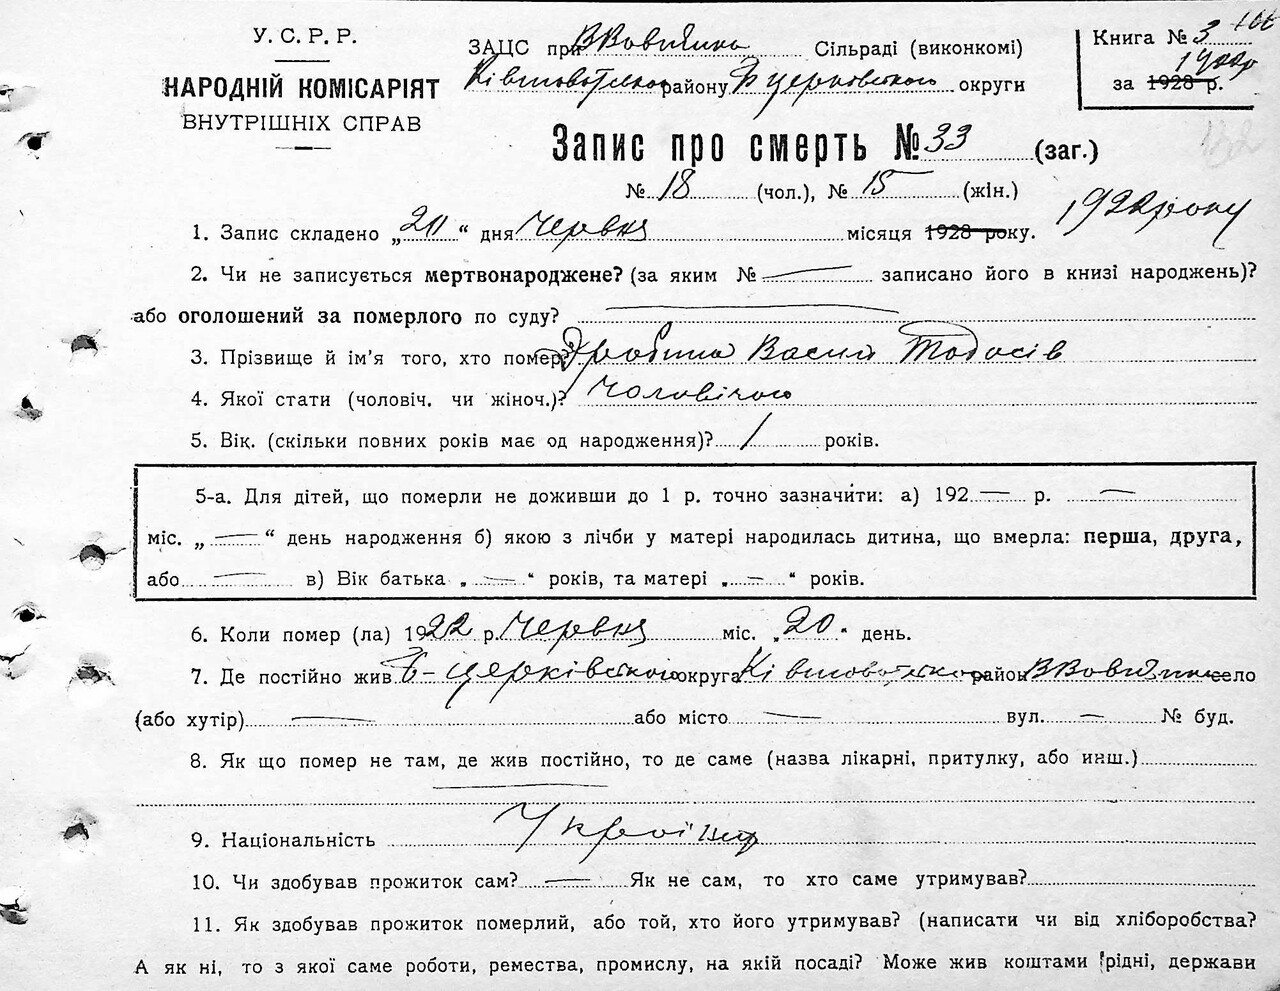 У. С. Р. Р.
НАРОДНІЙ КОМІСАРІЯТ
ВНУТРІШНІХ СПРАВ
ЗАЦС при ВВовнянко Сільраді (виконкомі)
району Б церковского округи
Книга № 3 166
за 1928 р. 1922р
Запис про смерть № 33 (заг.)
№ 18 (чол.), № 15 (жін.)
1. Запис складено „20“ дня Червня місяця 1928 року. 1922 року
2. Чи не записується мертвонароджене? (за яким № — записано його в книзі народжень)?
або оголошений за померлого по суду? —
3. Прізвище й ім'я того, хто помер? Дробина Василь Тодосів
4. Якої стати (чоловіч. чи жіноч.)? Чоловічого
5. Вік. (скільки повних років має од народження)? 1 років.
5-а. Для дітей, що померли не доживши до 1 р. точно зазначити: а) 192 — р. —
міс. „ — “ день народження б) якою з лічби у матері народилась дитина, що вмерла: перша, друга,
або — в) Вік батька „ — “ років, та матері „ — “ років.
6. Коли помер (ла) 1922 р. Червня міс. „20“ день.
7. Де постійно жив Б-церківського округа район село
(або хутір) — або місто — вул. — № буд.
8. Як що помер не там, де жив постійно, то де саме (назва лікарні, притулку, або инш.)
—
9. Національність Україңец
10. Чи здобував прожиток сам? — Як не сам, то хто саме утримував?
11. Як здобував прожиток померлий, або той, хто його утримував? (написати чи від хліборобства?
А як ні, то з якої саме роботи, ремества, промислу, на якій посаді? Може жив коштами рідні, держави